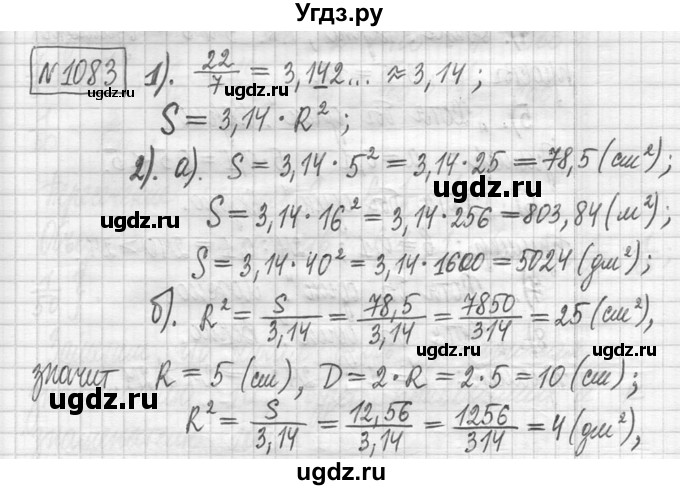 Угдз.ру
№ 1083 1). 22/7 = 3,142... ≈ 3,14 ;
ugdz.ru ugdz.ru
S = 3,14 · R² ;
ugdz.ru
2). а). S = 3,14 · 5² = 3,14 · 25 = 78,5 (см²) ;
ugdz.ru ugdz.ru
S = 3,14 · 16² = 3,14 · 256 = 803,84 (м²) ;
ugdz.ru
S = 3,14 · 40² = 3,14 · 1600 = 5024 (дм²) ;
ugdz.ru
б). R² = S/3,14 = 78,5/3,14 = 7850/314 = 25 (см²),
ugdz.ru ugdz.ru
значит R = 5 (см), D = 2 · R = 2 · 5 = 10 (см) ;
ugdz.ru
R² = S/3,14 = 12,56/3,14 = 1256/314 = 4 (дм²),
ugdz.ru ugdz.ru
ugdz.ru